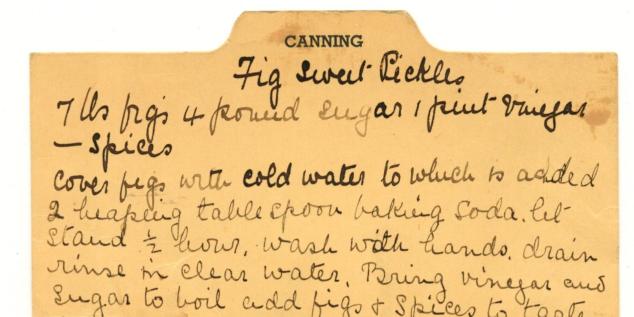 CANNING
Fig Sweet Pickles
7 lbs figs 4 pound sugar 1 pint vinegar
- Spices
cover figs with cold water to which is added
2 heaping tablespoon baking soda. let
stand ½ hour, wash with hands. drain
rinse in clear water. Bring vinegar and
sugar to boil add figs & Spices to taste